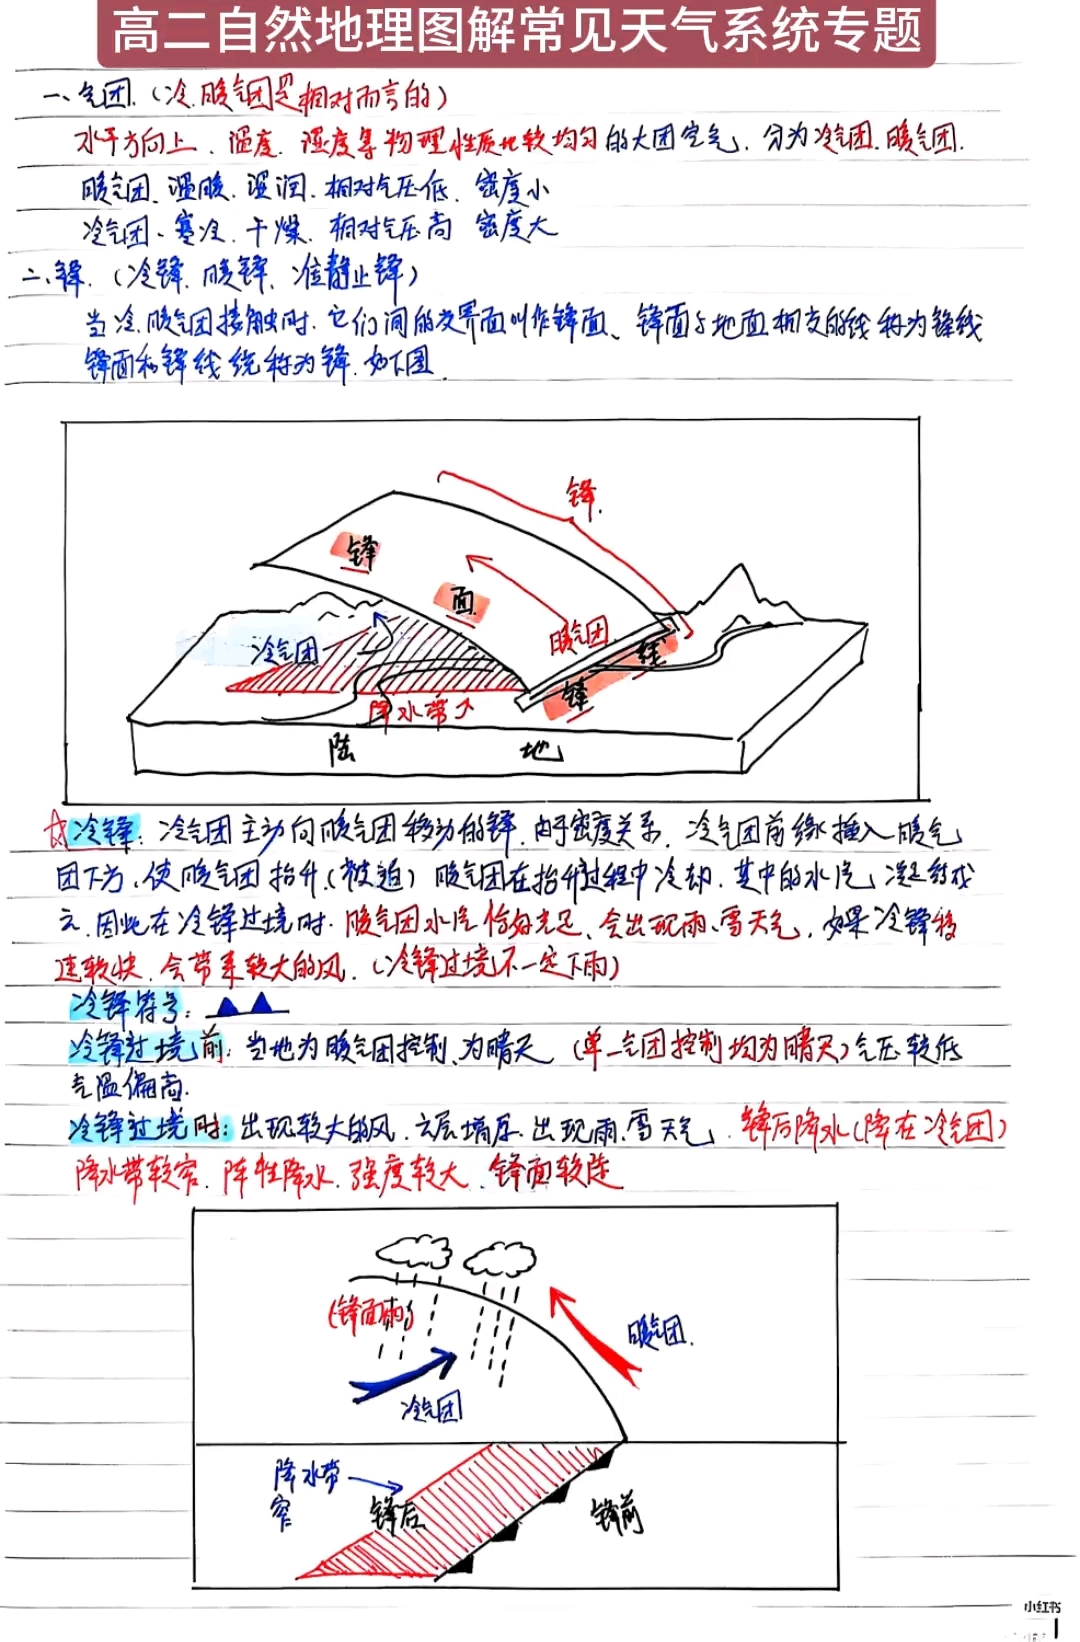 高二自然地理图解常见天气系统专题
一、气团.(冷.暖气团是相对而言的)
水平方向上、温度、湿度等物理性质比较均匀的大团空气,分为冷气团.暖气团.
暖气团、温暖.湿润.相对气压低.密度小
冷气团、寒冷.干燥.相对气压高 密度大
二、锋.(冷锋.暖锋、准静止锋)
当冷.暖气团接触时.它们间的交界面叫作锋面、锋面与地面相交的线称为锋线
锋面和锋线统称为锋.如下图
锋.
锋
面
暖气团
冷气团
线
锋
降水带
陆 地
☆冷锋:冷气团主动向暖气团移动的锋.由于密度关系.冷气团前缘插入暖气
团下方、使暖气团抬升.(被迫)暖气团在抬升过程中冷却.其中的水汽凝结成
云.因此在冷锋过境时.暖气团水汽恰好充足、会出现雨、雪天气,如果冷锋移
速较快.会带来较大的风.(冷锋过境不一定下雨)
冷锋符号:
冷锋过境前:当地为暖气团控制、为晴天(单一气团控制均为晴天)气压较低
气温偏高.
冷锋过境时:出现较大的风.云层增厚.出现雨、雪天气.锋后降水(降在冷气团)
降水带较窄.阵性降水.强度较大.锋面较陡
(锋面雨)
暖气团.
冷气团
降水带
窄
锋后
锋前
小红书